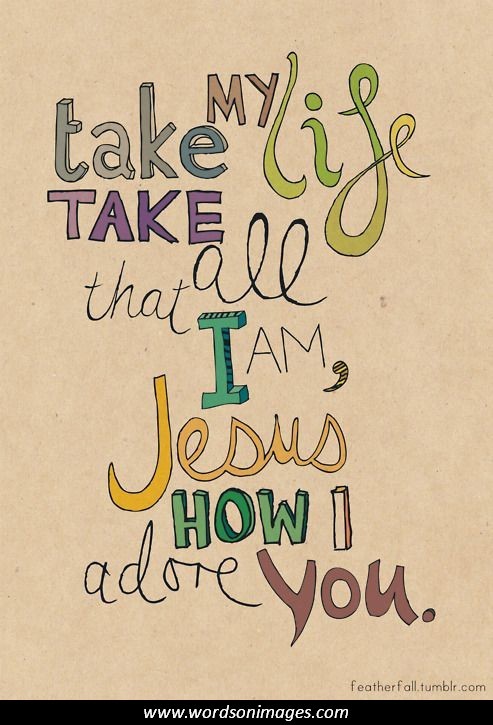 take MY life
TAKE all
that
I AM,
Jesus
HOW I
adore you.
featherfall.tumblr.com
www.wordsonimages.com